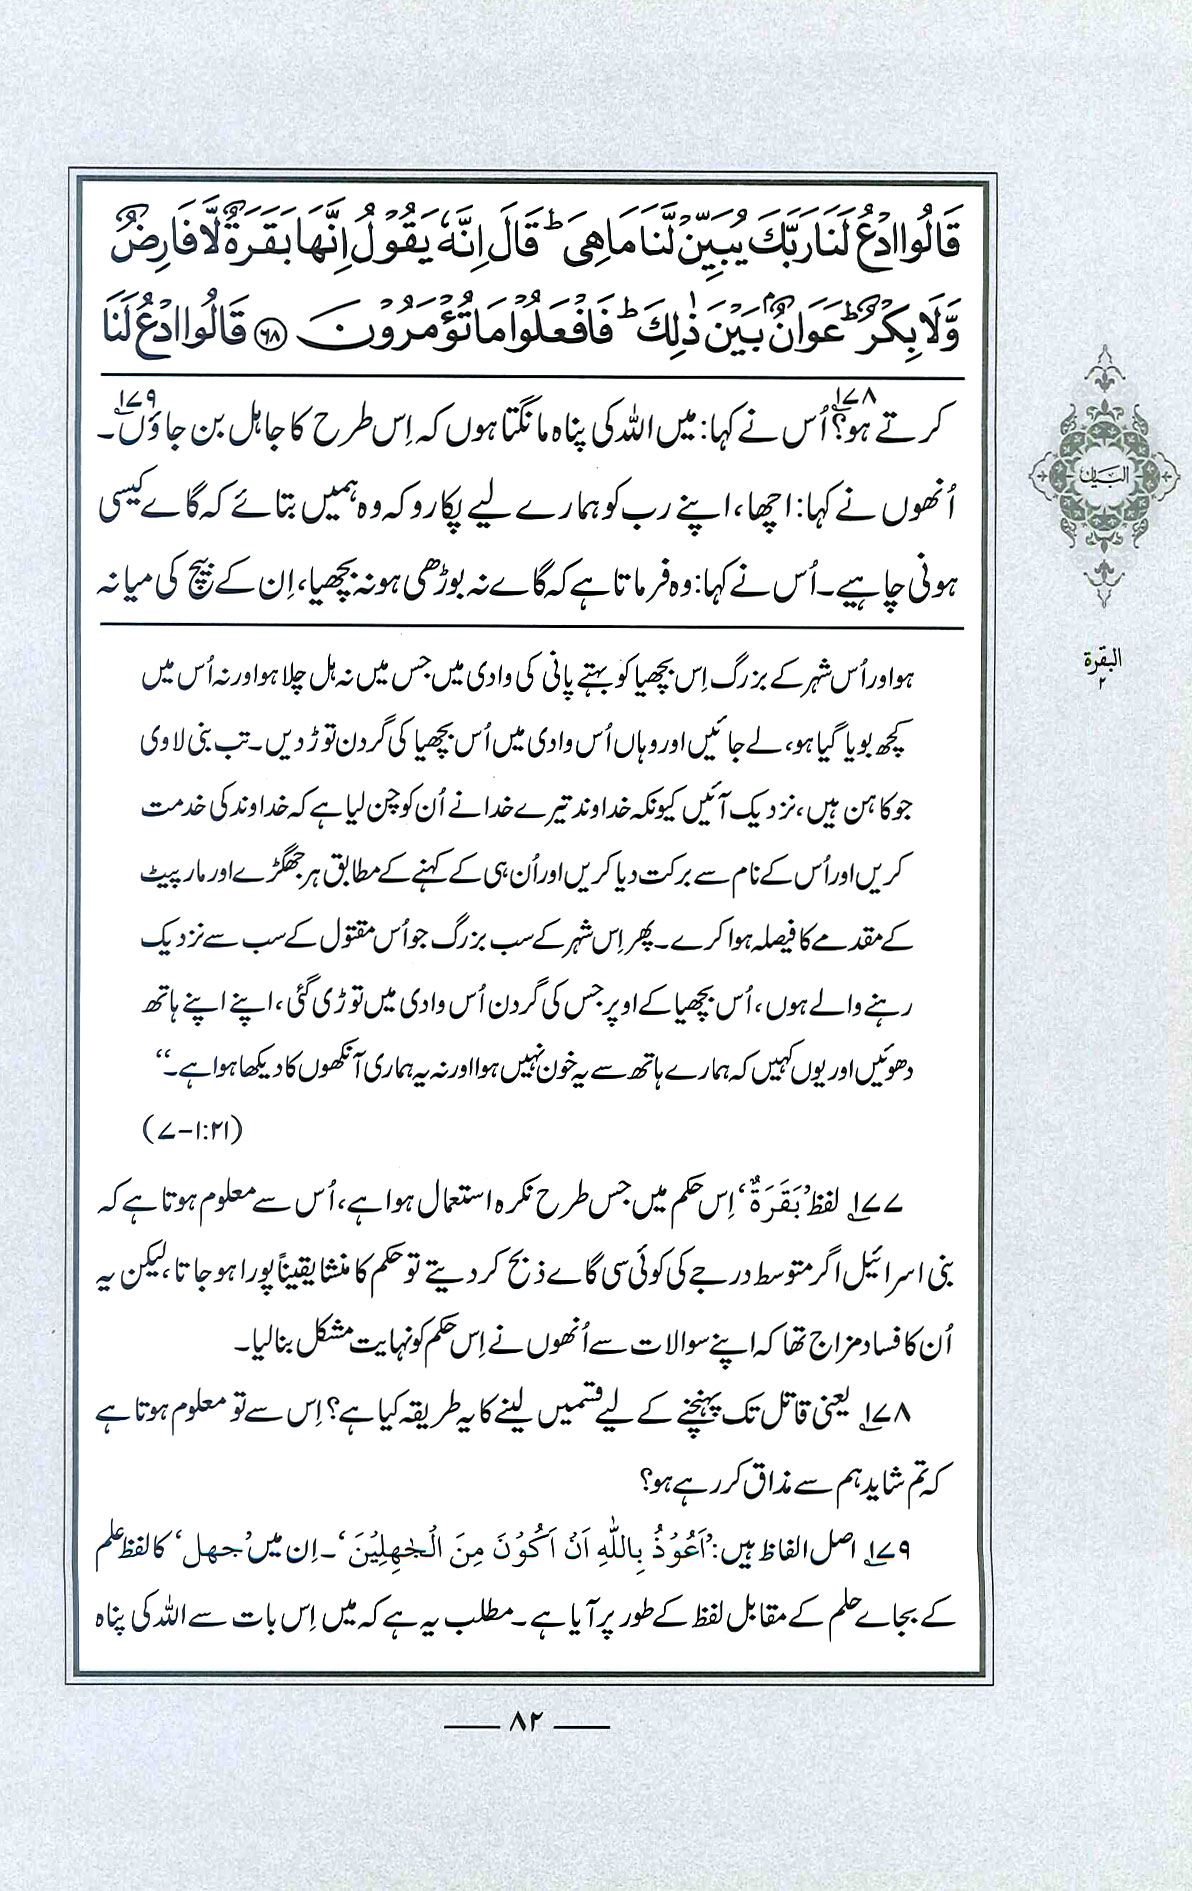 قَالُوا ادْعُ لَنَا رَبَّكَ يُبَيِّنْ لَّنَا مَا هِىَ ؕ قَالَ اِنَّهٗ يَقُوْلُ اِنَّهَا بَقَرَةٌ لَّا فَارِضٌ
وَّلَا بِكْرٌ ؕ عَوَانٌۢ بَيْنَ ذٰلِكَ ؕ فَافْعَلُوْا مَا تُؤْمَرُوْنَ ﴿۶۸﴾ قَالُوا ادْعُ لَنَا
کرتے ہو؟۱۷۸ اُس نے کہا: میں اللہ کی پناہ مانگتا ہوں کہ اِس طرح کا جاہل بن جاؤں۱۷۹۔
اُنھوں نے کہا: اچھا، اپنے رب کو ہمارے لیے پکارو کہ وہ ہمیں بتائے کہ گاے کیسی
ہونی چاہیے۔ اُس نے کہا: وہ فرماتا ہے کہ گاے نہ بوڑھی ہو نہ بچھیا، اِن کے بیچ کی میانہ
ہو اور اُس شہر کے بزرگ اِس بچھیا کو بہتے پانی کی وادی میں جس میں نہ ہل چلا ہو اور نہ اُس میں
کچھ بویا گیا ہو، لے جائیں اور وہاں اُس وادی میں اُس بچھیا کی گردن توڑ دیں۔ تب بنی لاوی
جو کاہن ہیں، نزدیک آئیں کیونکہ خداوند تیرے خدا نے اُن کو چن لیا ہے کہ خداوند کی خدمت
کریں اور اُس کے نام سے برکت دیا کریں اور اُن ہی کے کہنے کے مطابق ہر جھگڑے اور مار پیٹ
کے مقدمے کا فیصلہ ہوا کرے۔ پھر اِس شہر کے سب بزرگ جو اُس مقتول کے سب سے نزدیک
رہنے والے ہوں، اُس بچھیا کے اوپر جس کی گردن اُس وادی میں توڑی گئی، اپنے اپنے ہاتھ
دھوئیں اور یوں کہیں کہ ہمارے ہاتھ سے یہ خون نہیں ہوا اور نہ یہ ہماری آنکھوں کا دیکھا ہوا ہے۔‘‘
(۲۱: ۱-۷)
۱۷۷؎ لفظ ’بَقَرَةٌ‘ اِس حکم میں جس طرح نکرہ استعمال ہوا ہے، اُس سے معلوم ہوتا ہے کہ
بنی اسرائیل اگر متوسط درجے کی کوئی سی گاے ذبح کر دیتے تو حکم کا منشا یقیناً پورا ہو جاتا، لیکن یہ
اُن کا فساد مزاج تھا کہ اپنے سوالات سے اُنھوں نے اِس حکم کو نہایت مشکل بنا لیا۔
۱۷۸؎ یعنی قاتل تک پہنچنے کے لیے قسمیں لینے کا یہ طریقہ کیا ہے؟ اِس سے تو معلوم ہوتا ہے
کہ تم شاید ہم سے مذاق کر رہے ہو؟
۱۷۹؎ اصل الفاظ ہیں: ’اَعُوْذُ بِاللّٰهِ اَنْ اَكُوْنَ مِنَ الْجٰهِلِيْنَ‘۔ اِن میں ’جهل‘ کا لفظ علم
کے بجاے حلم کے مقابل لفظ کے طور پر آیا ہے۔ مطلب یہ ہے کہ میں اِس بات سے اللہ کی پناہ
البیان
البقرۃ
۲
۸۲